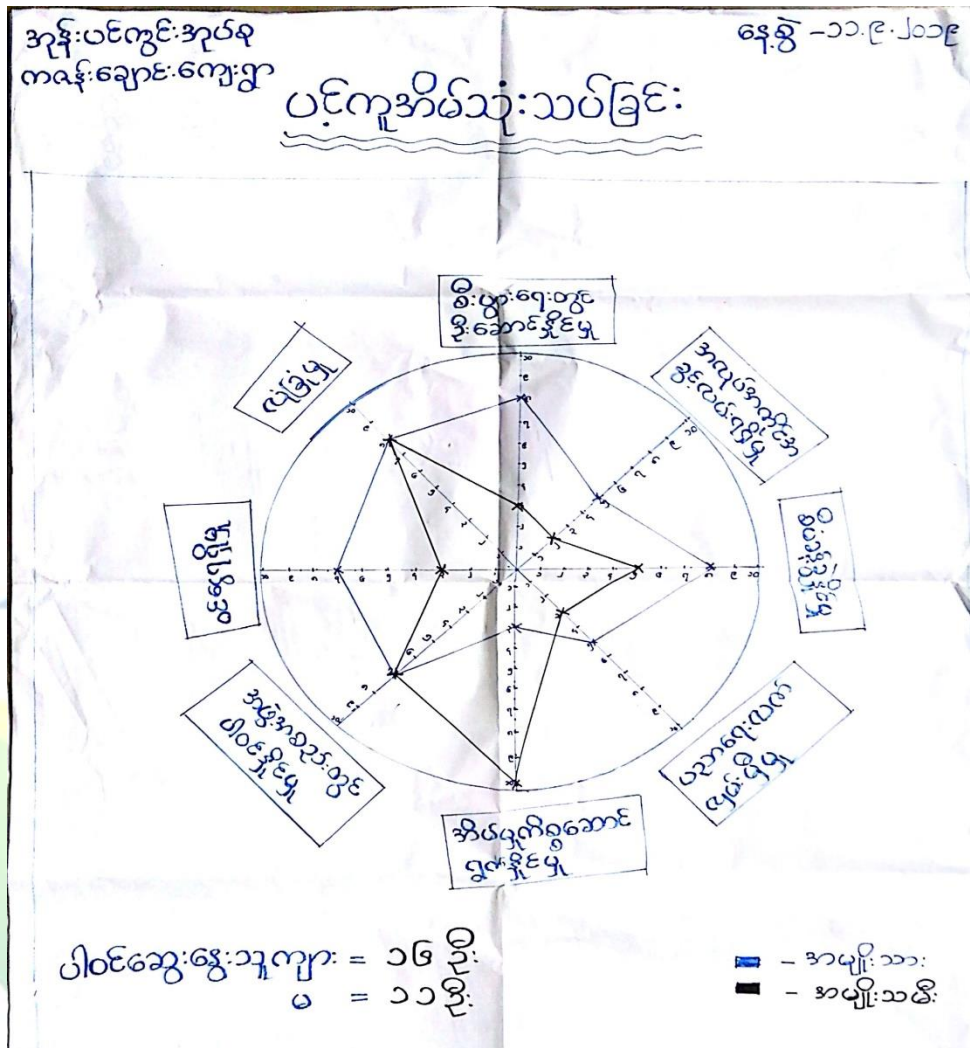 အုန်းပင်ကွင်းအုပ်စု
ကဇန်းချောင်းကျေးရွာ
နေ့စွဲ - ၁၁.၉.၂၀၁၉
ပင့်ကူအိမ်သုံးသပ်ခြင်း
စီးပွားရေးတွင်
ဦးဆောင်နိုင်မှု
အလုပ်အကိုင်အ
ခွင့်လမ်းရရှိမှု
စီမံခန့်ခွဲနိုင်မှု
ပညာရေးလက်
လှမ်းမှီမှု
အိမ်မှုကိစ္စဆောင်
ရွက်နိုင်မှု
အဖွဲ့အစည်းတွင်
ပါဝင်နိုင်မှု
ဝင်ငွေရရှိမှု
လုံခြုံမှု
ပါဝင်ဆွေးနွေးသူကျား = ၁၆ ဦး
မ = ၁၁ ဦး
- အမျိုးသား
- အမျိုးသမီး